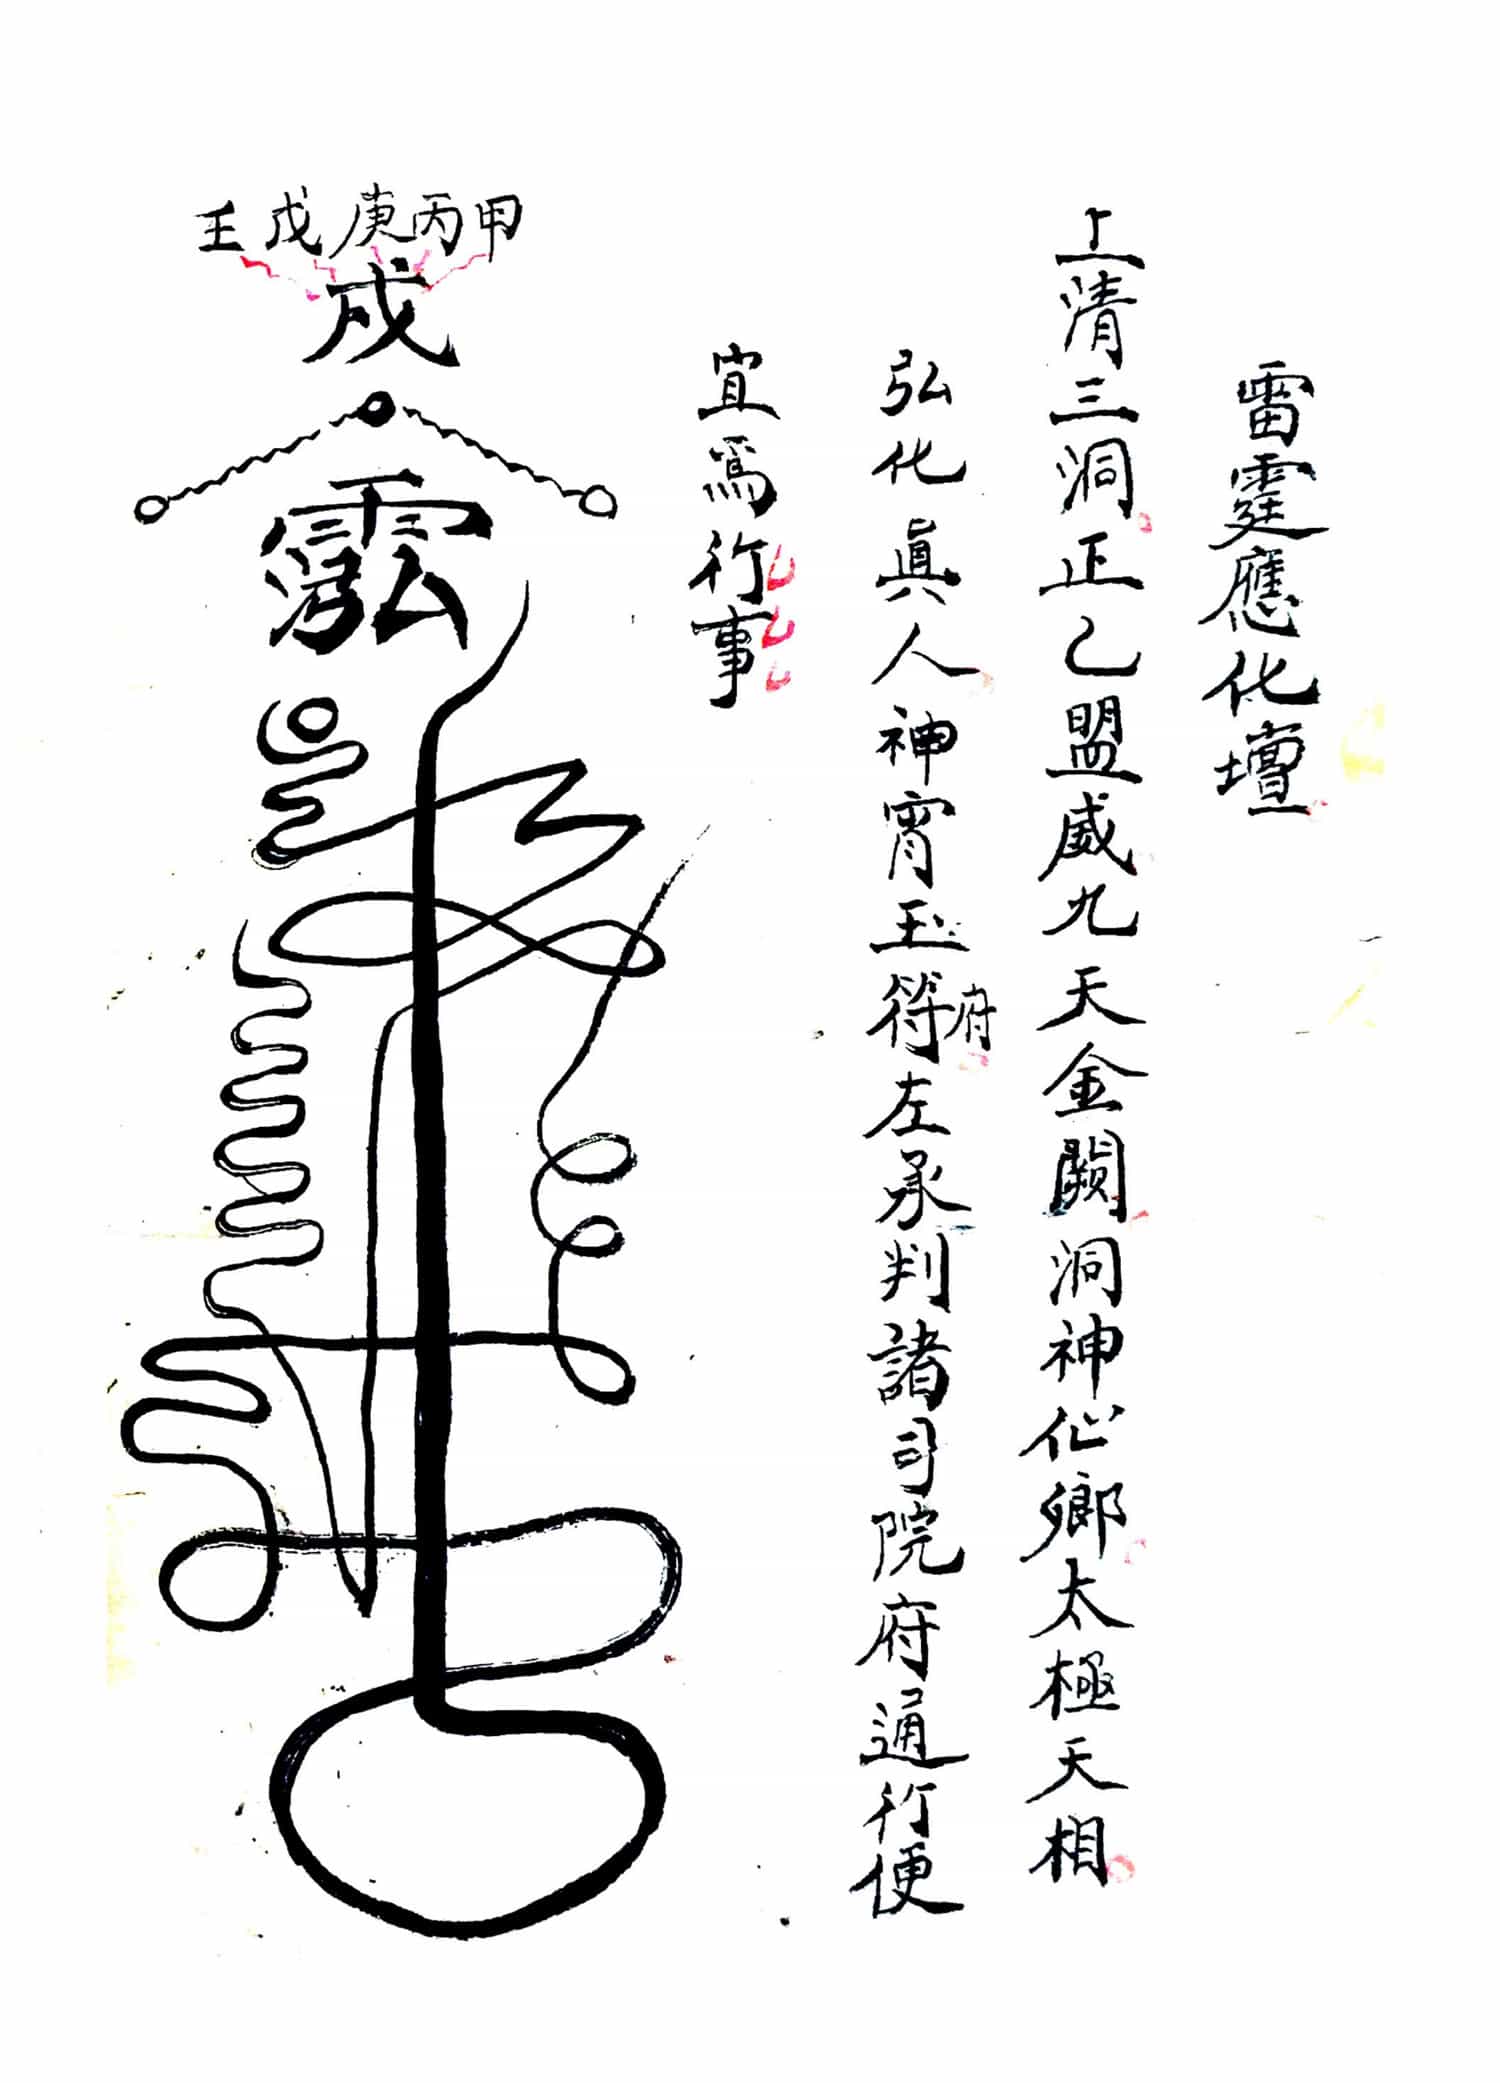 雷霆應化壇
上清三洞正乙盟威九天金闕洞神仙鄉太極天相
弘化眞人神霄玉符府左承判諸司院府通行便
宜爲行事
甲丙庚戊壬
戌
霐